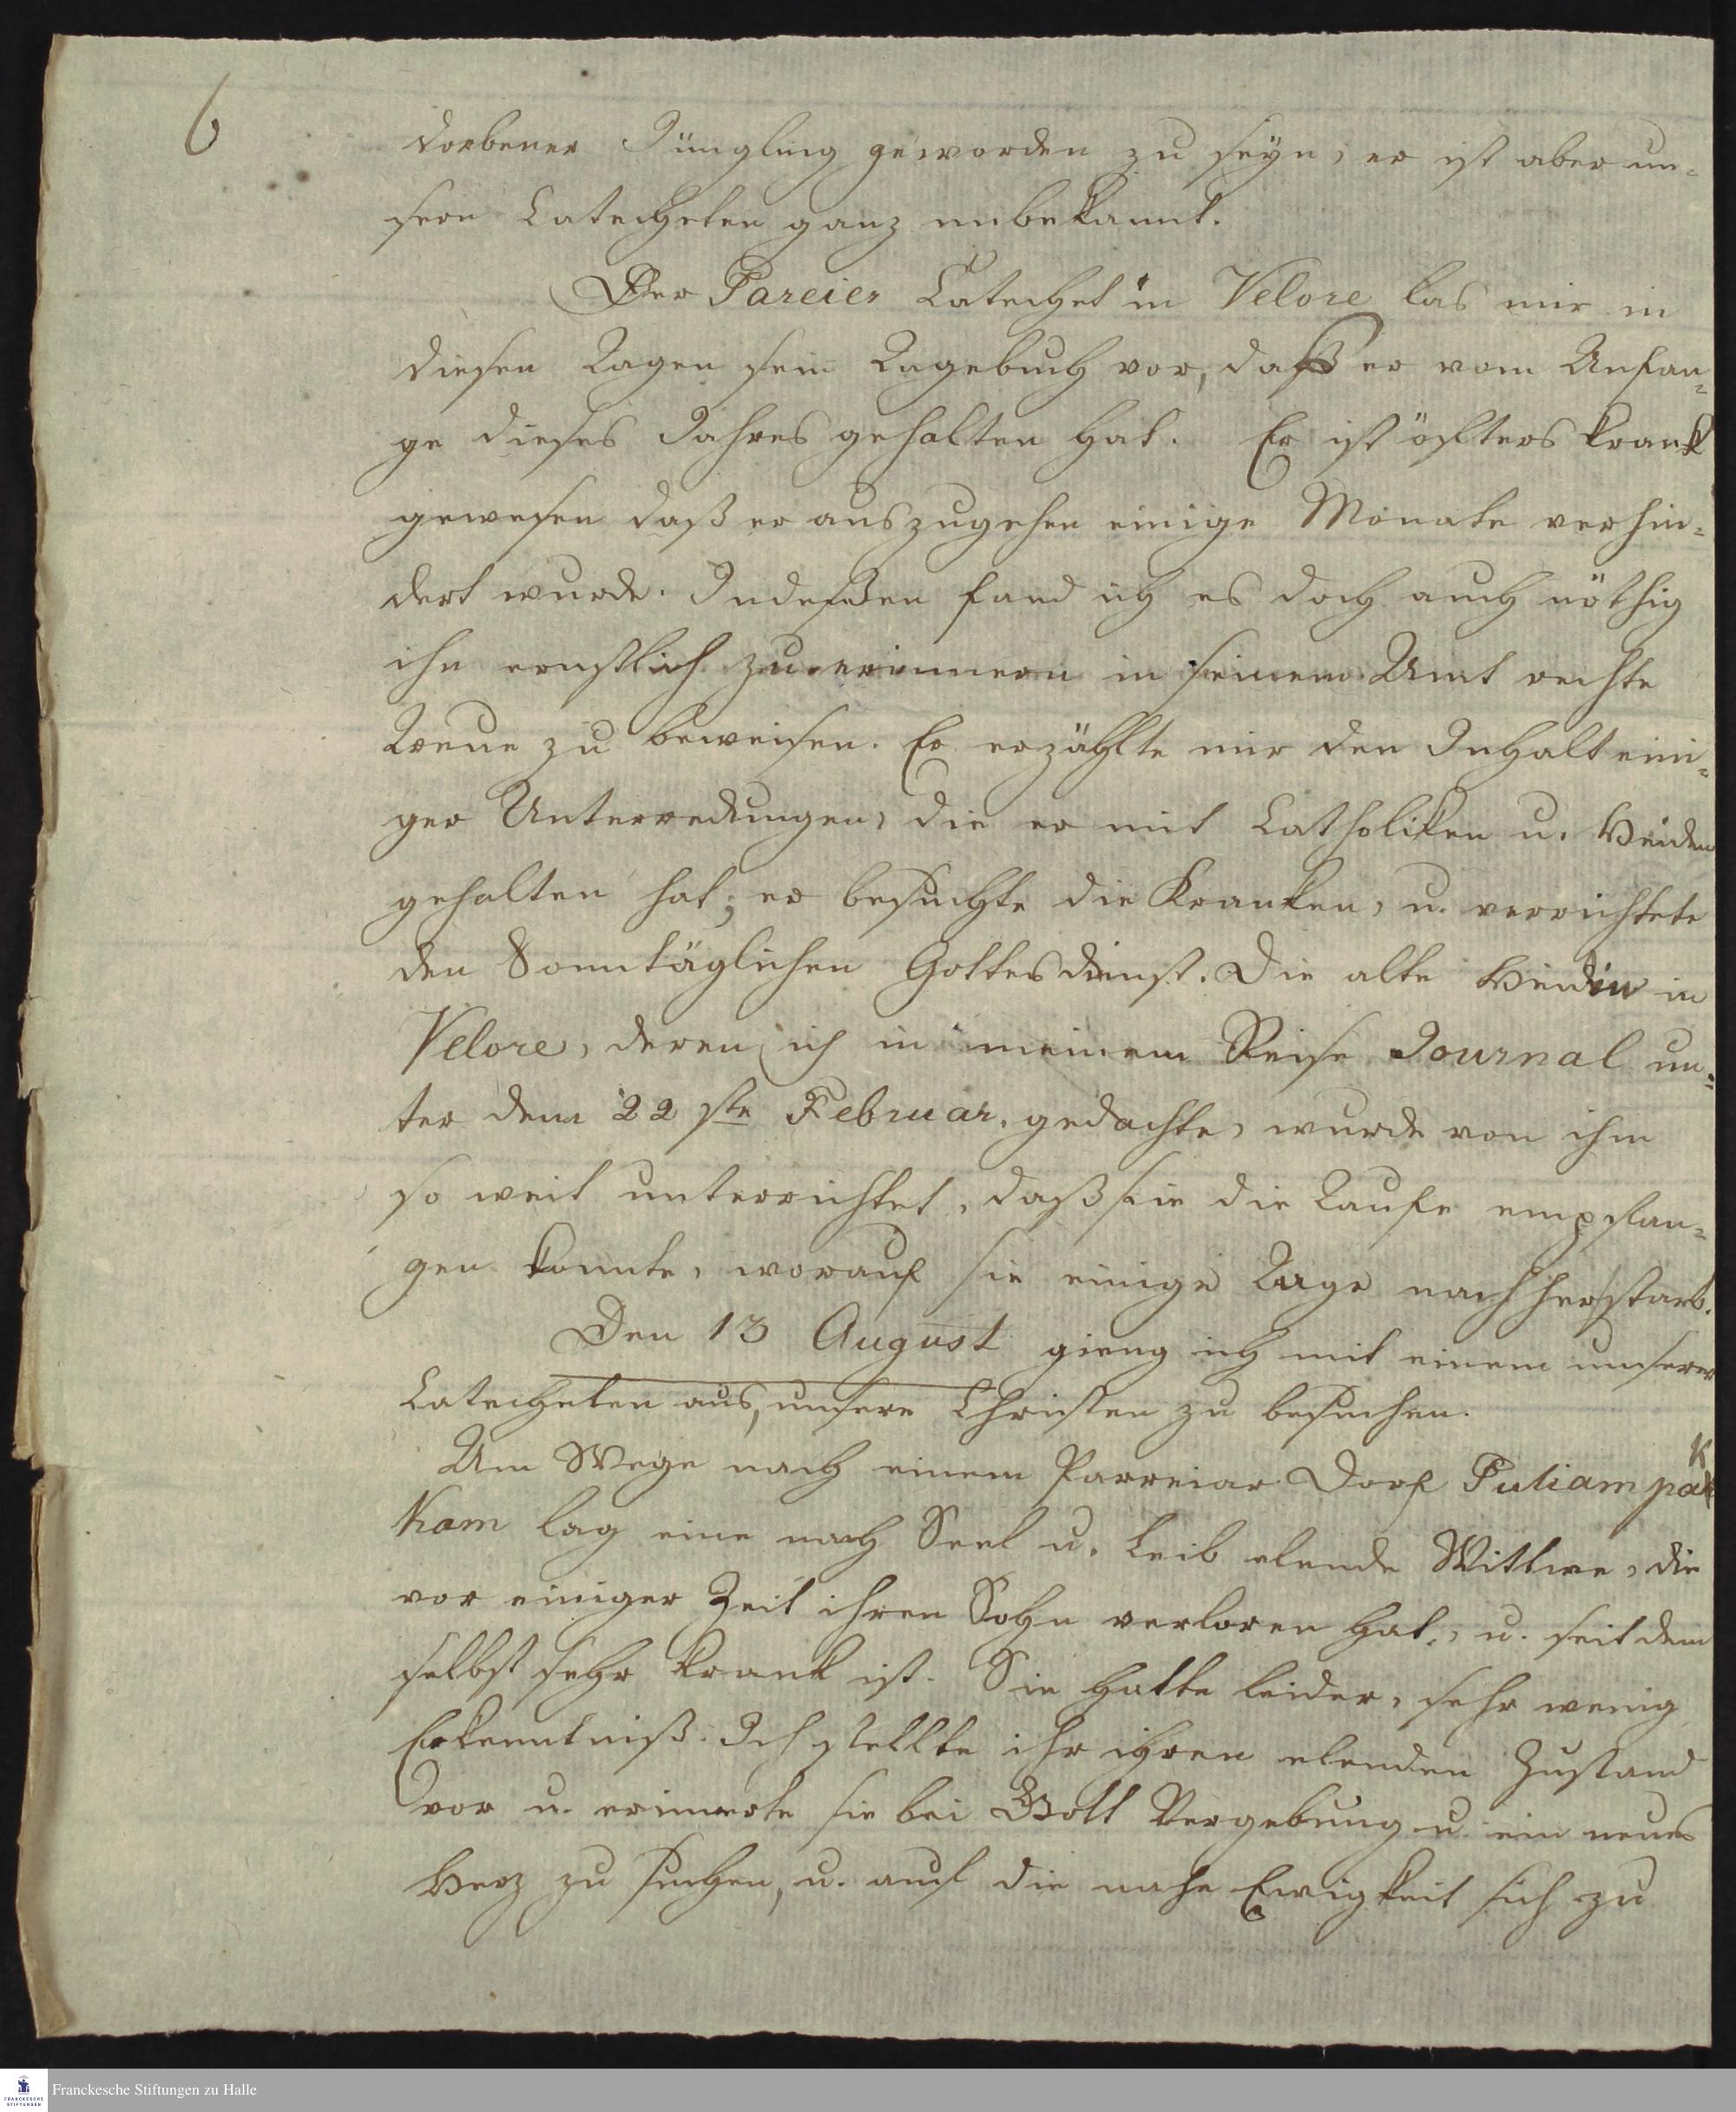 6
dorbener Jüngling geworden zu seyn, er ist aber un=
sern Catecheten ganz unbekannt.
Der Pareier Catechet in Velore las mir in
diesen Tagen sein Tagebuch vor, daß er vom Anfan=
ge dieses Jahres gehalten hat. Er ist öfters krank
gewesen daß er auszugehen einige Monate verhin=
dert wurde. Indeßen fand ich es doch auch nöthig
ihn ernstlich zu erinnern in seinem Amt rechte
Treue zu beweisen. Er erzählte mir den Inhalt eini=
ger Unterredungen, die er mit Catholiken u. Heiden
gehalten hat; er besuchte die Kranken, u. verrichtete
den Sonntäglichen Gottesdienst. Die alte Heidin in
Velore, deren ich in meinem Reise Journal un=
ter dem 22 ste Februar, gedachte, wurde von ihm
so weit unterrichtet, daß sie die Taufe empfan=
gen konnte, worauf sie einige Tage nachher starb.
Den 13 August gieng ich mit einem unserer
Catecheten aus, unsere Christen zu besuchen.
Am Wege nach einem Parreiar Dorf Puliampak
kam lag eine nach Seel u. Leib elende Wittwe, die
vor einiger Zeit ihren Sohn verloren hat, u. seit dem
selbst sehr krank ist. Sie hatte leider, sehr wenig
Erkenntniß. Ich stellte ihr ihren elenden Zustand
vor u. erinnerte sie bei Gott Vergebung u. ein neues
Herz zu suchen, u. auf die nahe Ewigkeit sich zu
Franckesche Stiftungen zu Halle